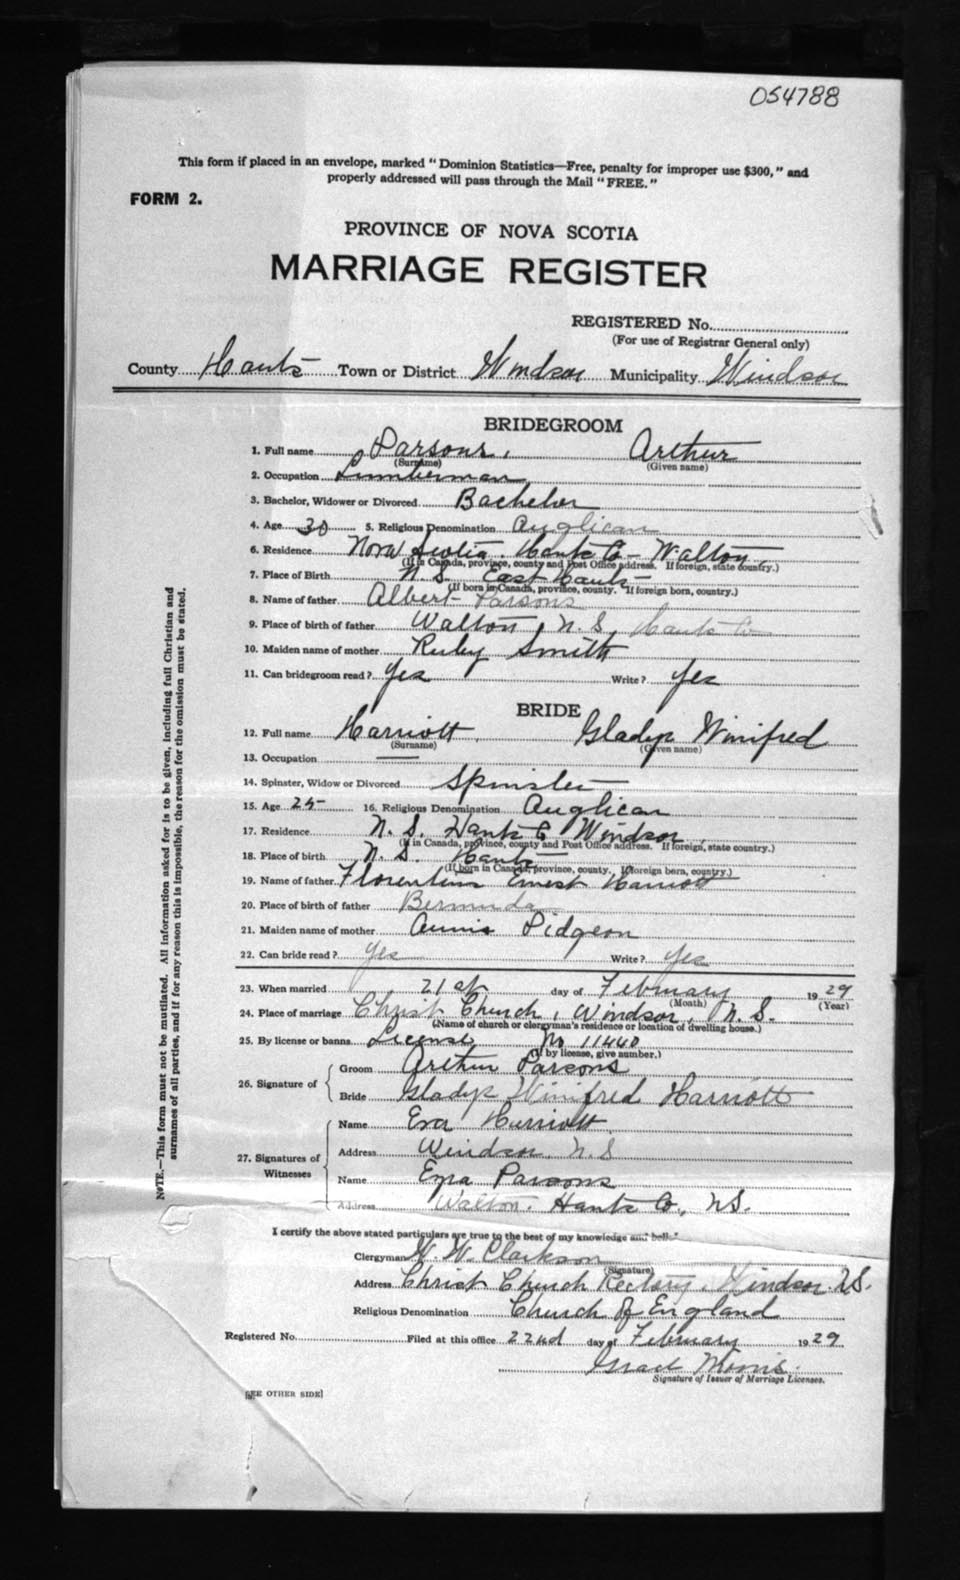 054788
This form if placed in an envelope, marked "Dominion Statistics—Free, penalty for improper use $300," and
properly addressed will pass through the Mail "FREE."
FORM 2.
PROVINCE OF NOVA SCOTIA
MARRIAGE REGISTER
REGISTERED No.
(For use of Registrar General only)
County Hants Town or District Windsor Municipality Windsor
BRIDEGROOM
1. Full name Parsons, Arthur
(Surname) (Given name)
2. Occupation Lumberman
3. Bachelor, Widower or Divorced Bachelor
4. Age 30 5. Religious Denomination Anglican
6. Residence Nova Scotia. Hants Co - Walton
(If in Canada, province, county and Post Office address. If foreign, state country.)
7. Place of Birth N.S. East Hants
(If born in Canada, province, county. If foreign born, country.)
8. Name of father Albert Parsons
9. Place of birth of father Walton, N.S, Hants Co
10. Maiden name of mother Ruby Smith
11. Can bridegroom read? Yes Write? Yes
BRIDE
12. Full name Harriott, Gladys Winifred
(Surname) (Given name)
13. Occupation —
14. Spinster, Widow or Divorced Spinster
15. Age 25 16. Religious Denomination Anglican
17. Residence N.S. Hants Co Windsor
(If in Canada, province, county and Post Office address. If foreign, state country.)
18. Place of birth N.S. Hants
(If born in Canada, province, county. If foreign born, country.)
19. Name of father Ernest Harriott
20. Place of birth of father Bermuda
21. Maiden name of mother Annie Pidgeon
22. Can bride read? Yes Write? Yes
23. When married 21st day of February 1929
(Month) (Year)
24. Place of marriage Christ Church, Windsor, N.S.
(Name of church or clergyman's residence or location of dwelling house.)
25. By license or banns License No 11440
(If by license, give number.)
26. Signature of Groom Arthur Parsons
Bride Gladys Winifred Harriott
27. Signatures of Witnesses Name Eva Harriott
Address Windsor, N.S
Name Ezra Parsons
Address Walton. Hants Co, NS.
I certify the above stated particulars are true to the best of my knowledge and belief
Clergyman W. W. Clarkson
(Signature)
Address Christ Church Rectory, Windsor. N.S.
Religious Denomination Church of England
Registered No. Filed at this office 22nd day of February 1929
Grace Morris
Signature of Issuer of Marriage Licenses.
[SEE OTHER SIDE]
NOTE.—This form must not be mutilated. All information asked for is to be given, including full Christian and
surnames of all parties, and if for any reason this is impossible, the reason for the omission must be stated.